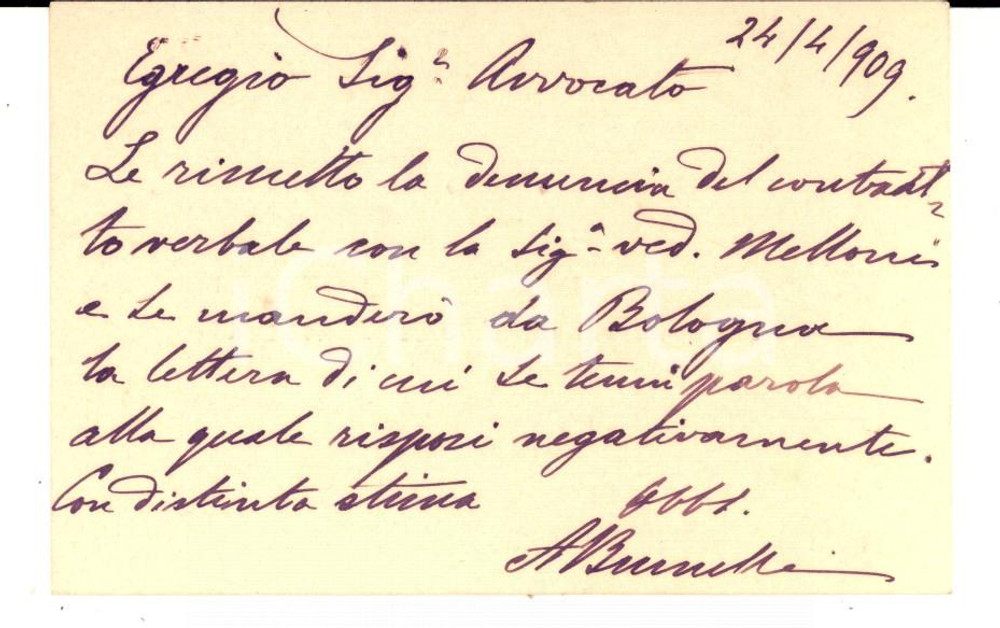 24/4/909.
Egregio Sig.r Avvocato
Le rimetto la denuncia del contrat-
to verbale con la Sig.a ved. Melloni
e Le manderò da Bologna
la lettera di cui Le tenni parola
alla quale risposi negativamente.
Con distinta stima Obbl.
ABrunelli
iCharta